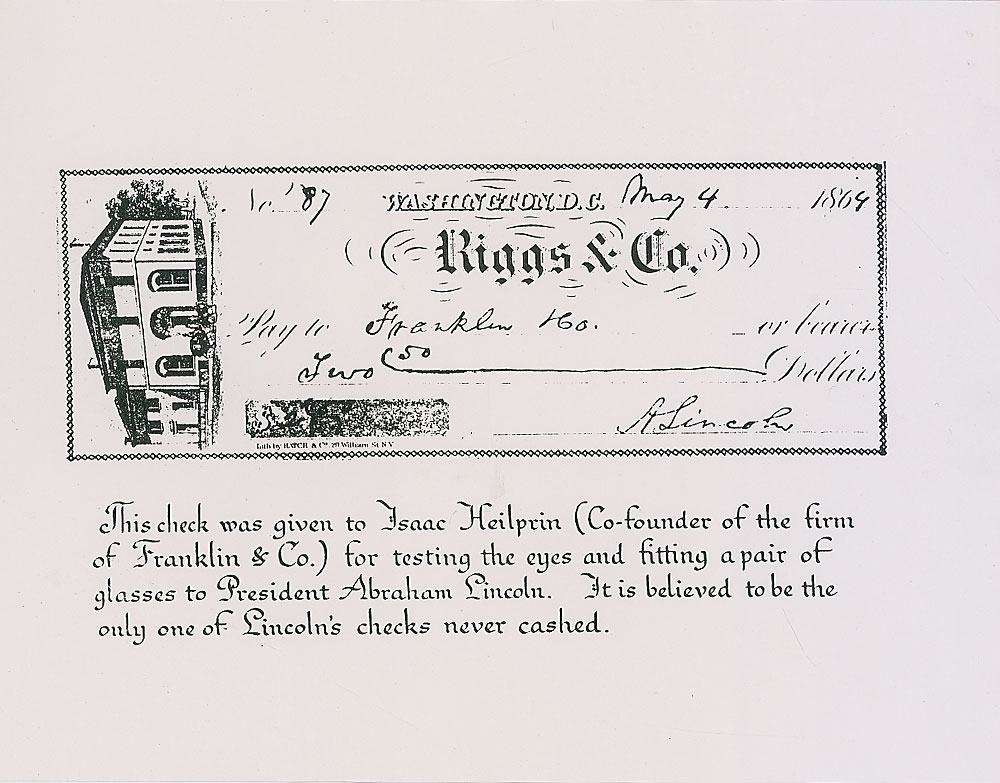 No. 87 WASHINGTON, D.C. May 4 1864
Riggs & Co.
Pay to Franklin & Co. or bearer
Two 50 Dollars
A Lincoln
Lith by HATCH & Co. 29 William St N.Y
This check was given to Isaac Heilprin (Co-founder of the firm
of Franklin & Co.) for testing the eyes and fitting a pair of
glasses to President Abraham Lincoln. It is believed to be the
only one of Lincoln's checks never cashed.